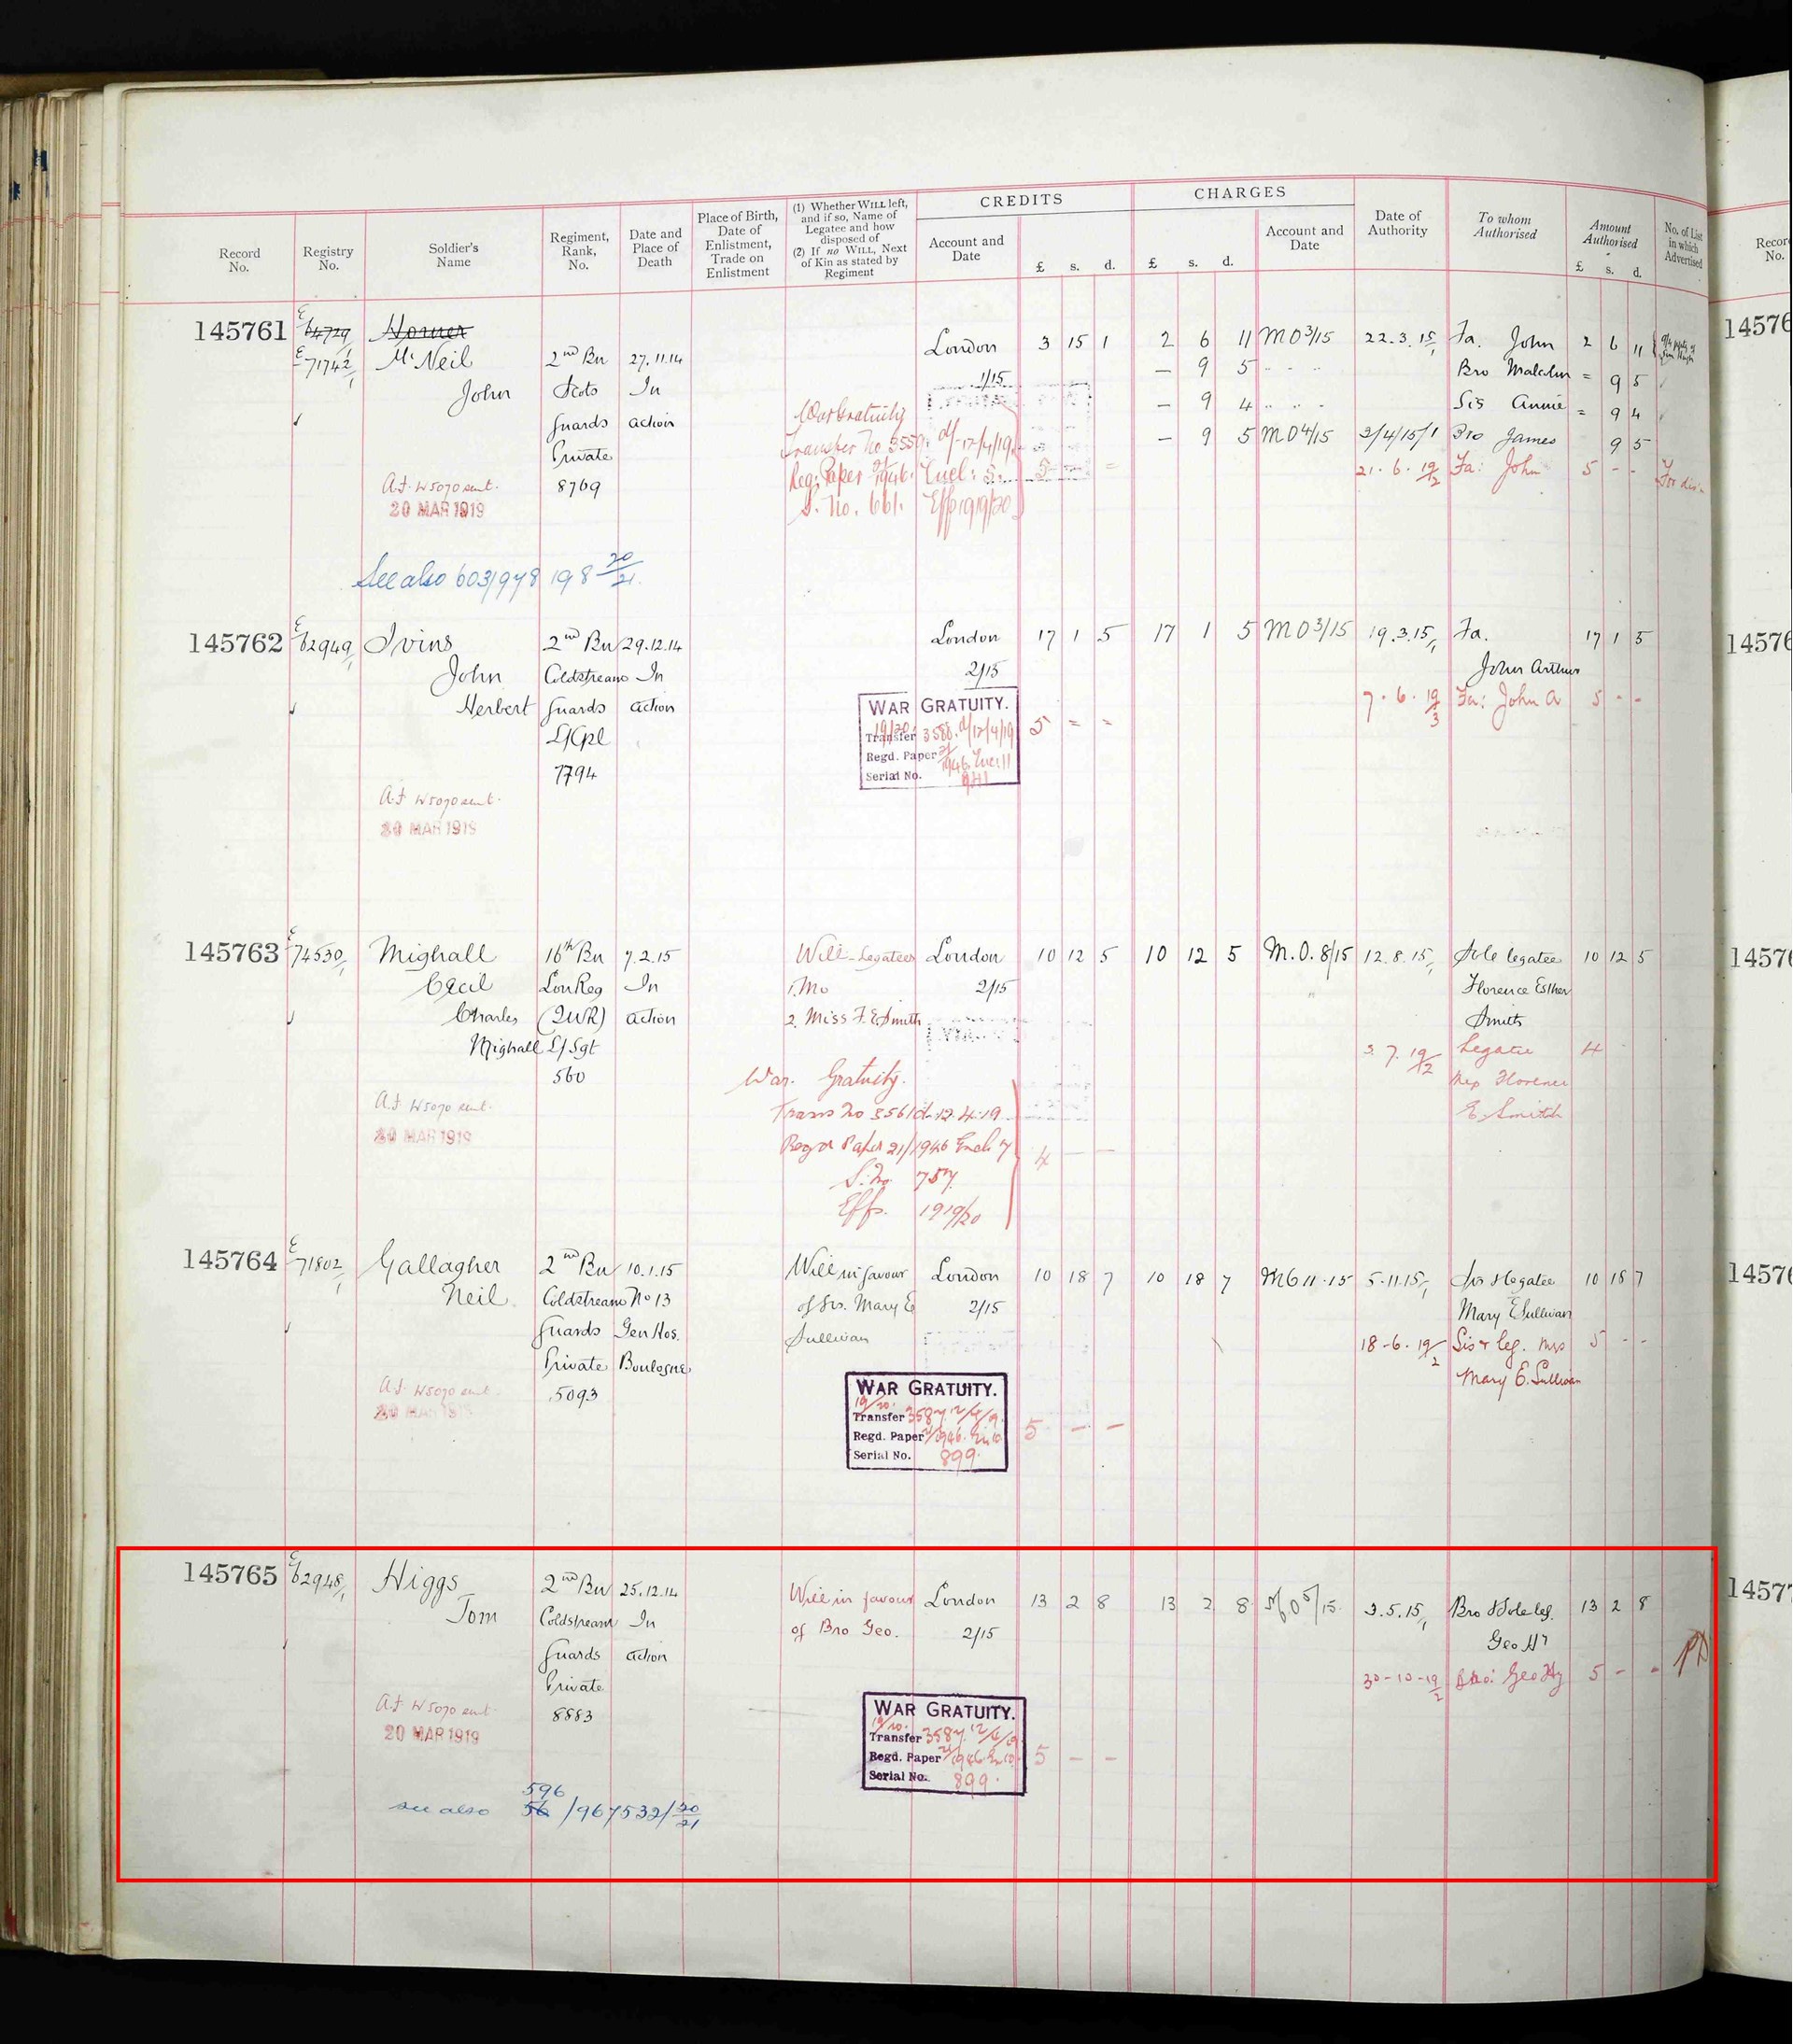 CREDITS
CHARGES
Record
No.
Registry
No.
Soldier's
Name
Regiment,
Rank,
No.
Date and
Place of
Death
Place of Birth,
Date of
Enlistment,
Trade on
Enlistment
(1) Whether WILL left,
and if so, Name of
Legatee and how
disposed of
(2) If no WILL, Next
of Kin as stated by
Regiment
Account and
Date
£ s. d.
£ s. d.
Account and
Date
Date of
Authority
To whom
Authorised
Amount
Authorised
£ s. d.
No. of List
in which
Advertised
Recor
No.
145761 E 64729/1 Horner
E 71742/1 McNeil 2nd Bn 27.11.14 London 3 15 1 2 6 11 MO 3/15 22.3.15/1 Fa. John 2 6 11
John Scots In 1/15 — 9 5 " " " Bro Malcolm = 9 5
Guards action — 9 4 " " " Sis Annie = 9 4
Private — 9 5 MO 4/15 2/4/15/1 Bro James 9 5
8769
War Gratuity
Transfer No 3559. d/-12/4/19
Reg. Paper 21/1946. Encl: 5. 5 - =
S. No. 661. Eff 1919/20
21.6.19/12 Fa: John 5 - -
A.F. W5070 sent.
20 MAR 1919
See also 603/978198 20/21.
14576
145762 E 62949/1 Ivins 2nd Bn 29.12.14 London 17 1 5 17 1 5 MO 3/15 19.3.15/1 Fa. 17 1 5
John Coldstream In 2/15 John Arthur
Herbert Guards action 7.6.19/3 Fa: John A 5 - -
L/Cpl
7794
WAR GRATUITY.
19/20.
Transfer 3588. d/12/4/19
Regd. Paper 21/1946. Enc: 11
Serial No. 941
5 = =
A.F. W5070 sent.
20 MAR 1919
14576
145763 E 74530/1 Mighall 16th Bn 7.2.15 Will-Legatees London 10 12 5 10 12 5 M.O. 8/15 12.8.15/1 Sole legatee 10 12 5
Cecil Lon Reg In 1. Mo 2/15 Florence Esther
Charles (QWR) action 2. Miss F. E. Smith Smith
Mighall L/Sgt 3.7.19/12 Legatee 4
560 Florence
E. Smith
War. Gratuity.
Trans No 3561 d-12.4.19
Regd Paper 21/1946 Encl 7
S. No. 757. 4 — —
Effs. 1919/20
A.F. W5070 sent.
20 MAR 1919
14576
145764 E 71802/1 Gallagher 2nd Bn 10.1.15 Will in favour London 10 18 7 10 18 7 MO 11.15 5.11.15/1 Sis & legatee 10 18 7
Neil Coldstream No 13 of Sis. Mary E 2/15 Mary E Sullivan
Guards Gen Hos. Sullivan 18-6-19/2 Sis & leg. Mrs 5 - -
Private Boulogne Mary E. Sullivan
5093
WAR GRATUITY.
19/20.
Transfer 3587. 12/4/9.
Regd. Paper 21/1946. En 10
Serial No. 899.
5 — —
A.F. W5070 sent.
20 MAR 1919
14576
145765 E 62948/1 Higgs 2nd Bn 25.12.14 Will in favour London 13 2 8 13 2 8 MO 5/15. 3.5.15/1 Bro & Sole leg. 13 2 8
Tom Coldstream In of Bro Geo. 2/15 Geo Hy
Guards action 30-10-19/2 Bro: Geo Hy 5 - -
Private
8883
WAR GRATUITY.
19/20.
Transfer 3587. 12/4/19.
Regd. Paper 21/1946 En 10.
Serial No. 899.
5 — —
A.F. W5070 sent.
20 MAR 1919
596
see also 56/967532/20/21
1457